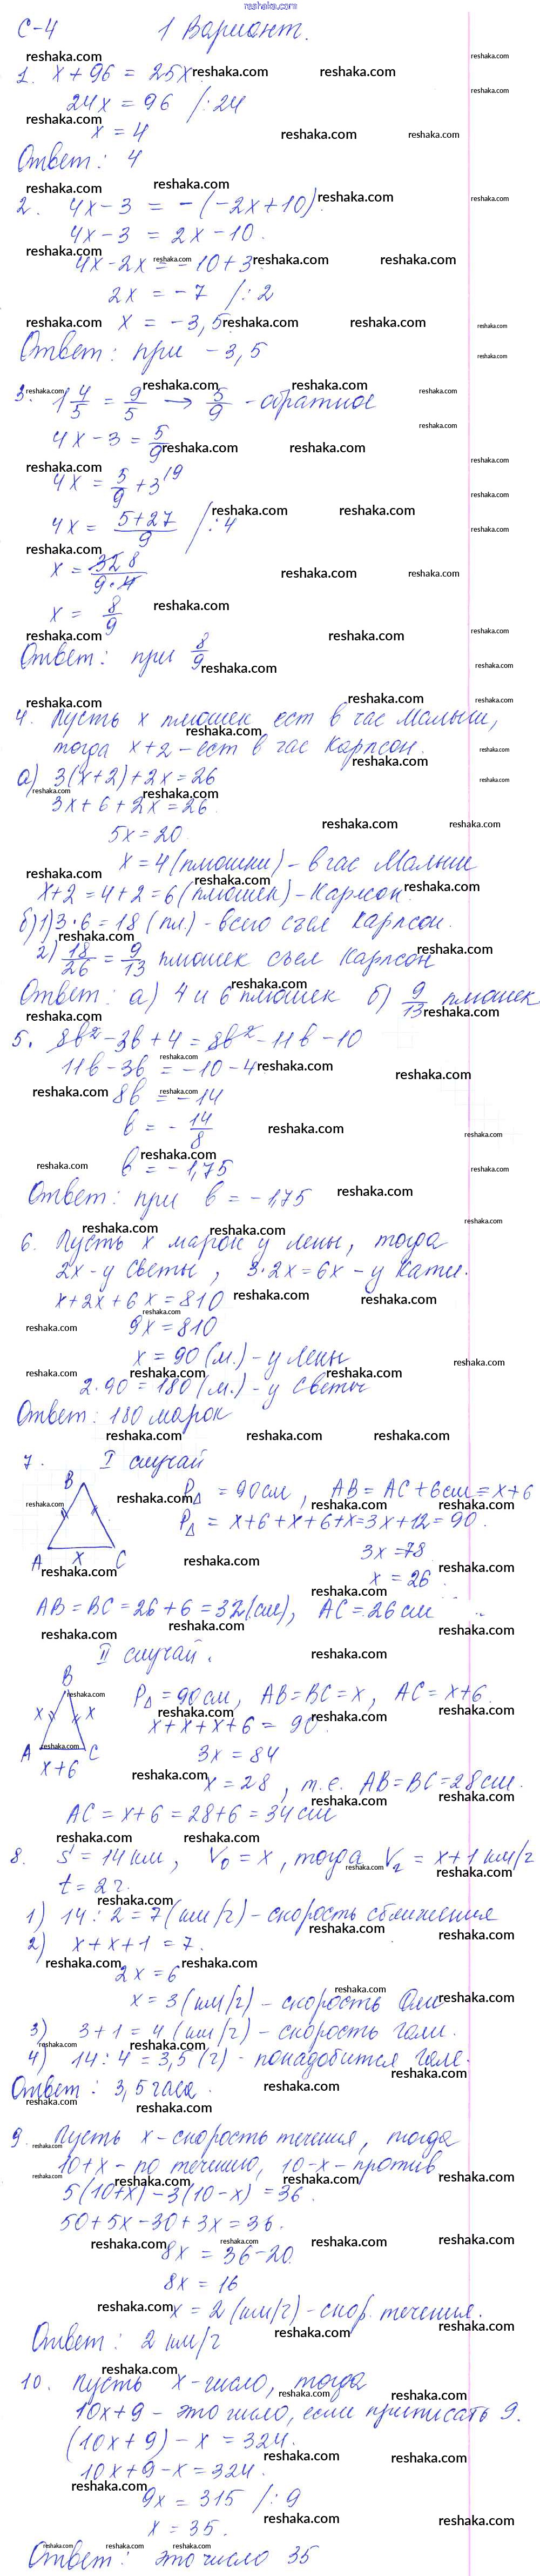 reshaka.com
С-4 1 Вариант.
1. x + 96 = 25x
24x = 96 /:24
x = 4
Ответ: 4
2. 4x - 3 = -(-2x+10).
4x - 3 = 2x - 10.
4x - 2x = -10 + 3
2x = -7 /:2
x = -3,5
Ответ: при -3,5
3. 1 4/5 = 9/5 → 5/9 - обратное
4x - 3 = 5/9
4x = 5/9 + 3 /9
4x = (5+27)/9 /:4
x = 32 8/(9·4)
x = 8/9
Ответ: при 8/9
4. Пусть x плюшек ест в час Малыш,
тогда x+2 - ест в час Карлсон.
а) 3(x+2)+2x=26
3x+6+2x=26.
5x=20
x=4 (плюшки) - в час Малыш
x+2=4+2=6 (плюшек) - Карлсон.
б) 1) 3·6=18 (пл.) - всего съел Карлсон.
2) 18/26 = 9/13 плюшек съел Карлсон
Ответ: а) 4 и 6 плюшек б) 9/13 плюшек
5. 8b² - 3b + 4 = 8b² - 11b - 10
11b - 3b = -10 - 4
8b = -14
b = - 14/8
b = -1,75
Ответ: при b = -1,75
6. Пусть x марок у Лены, тогда
2x - у Светы, 3·2x=6x - у Кати.
x+2x+6x=810
9x=810
x=90 (м.) - у Лены
2·90=180 (м.) - у Светы
Ответ: 180 марок
7. I случай
B
P△ = 90см, AB = AC + 6см = x+6
P△ = x+6+x+6+x=3x+12=90.
A x C
3x=78
x = 26
AB = BC = 26+6 = 32(см), AC = 26 см
II случай.
B
P△ = 90см, AB=BC=x, AC=x+6
x x
x+x+x+6 = 90.
A C
x+6
3x = 84
x = 28, т.е. AB=BC=28см.
AC = x+6 = 28+6 = 34 см
8. S = 14 км, V₀ = x, тогда V₂ = x+1 км/г
t = 2 г.
1) 14:2 = 7 (км/г) - скорость сближения
2) x+x+1 = 7.
2x = 6
x = 3 (км/г) - скорость Оли
3) 3+1 = 4 (км/г) - скорость Гали.
4) 14:4 = 3,5 (г) - понадобится Гале.
Ответ: 3,5 часа.
9. Пусть x - скорость течения, тогда
10+x - по течению, 10-x - против
5(10+x) - 3(10-x) = 36.
50+5x-30+3x=36.
8x = 36-20
8x = 16
x = 2 (км/г) - скор. течения.
Ответ: 2 км/г
10. Пусть x - число, тогда
10x+9 - это число, если приписать 9.
(10x+9) - x = 324.
10x+9-x = 324.
9x = 315 /:9
x = 35.
Ответ: это число 35